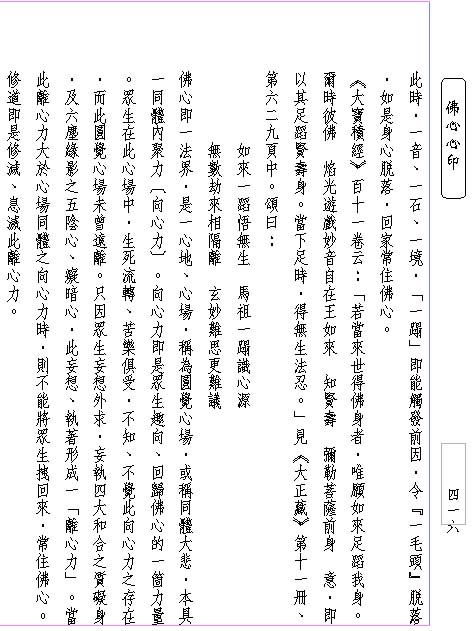 佛心心印
四一六
此時，一音、一石、一境，「一蹋」即能觸發前因，令『一毛頭』脫落
，如是身心脫落，回家常住佛心。
《大寶積經》百十一卷云：「若當來世得佛身者，唯願如來足蹈我身。
爾時彼佛　焰光遊戲妙音自在王如來　知賢壽　彌勒菩薩前身　意，即
以其足蹈賢壽身。當下足時，得無生法忍。」見《大正藏》第十一冊、
第六二九頁中。頌曰：
如來一蹈悟無生　馬祖一蹋識心源
無數劫來相隔離　玄妙難思更難議
佛心即一法界，是一心地、心場，稱為圓覺心場，或稱同體大悲，本具
一同體內聚力〔向心力〕。向心力即是眾生趣向、回歸佛心的一箇力量
。眾生在此心場中，生死流轉、苦樂俱受，不知、不覺此向心力之存在
，而此圓覺心場未曾遠離。只因眾生妄想外求，妄執四大和合之質礙身
，及六塵緣影之五陰心、癡暗心，此妄想、執著形成一「離心力」。當
此離心力大於心場同體之向心力時，則不能將眾生拽回來，常住佛心。
修道即是修滅、息滅此離心力。